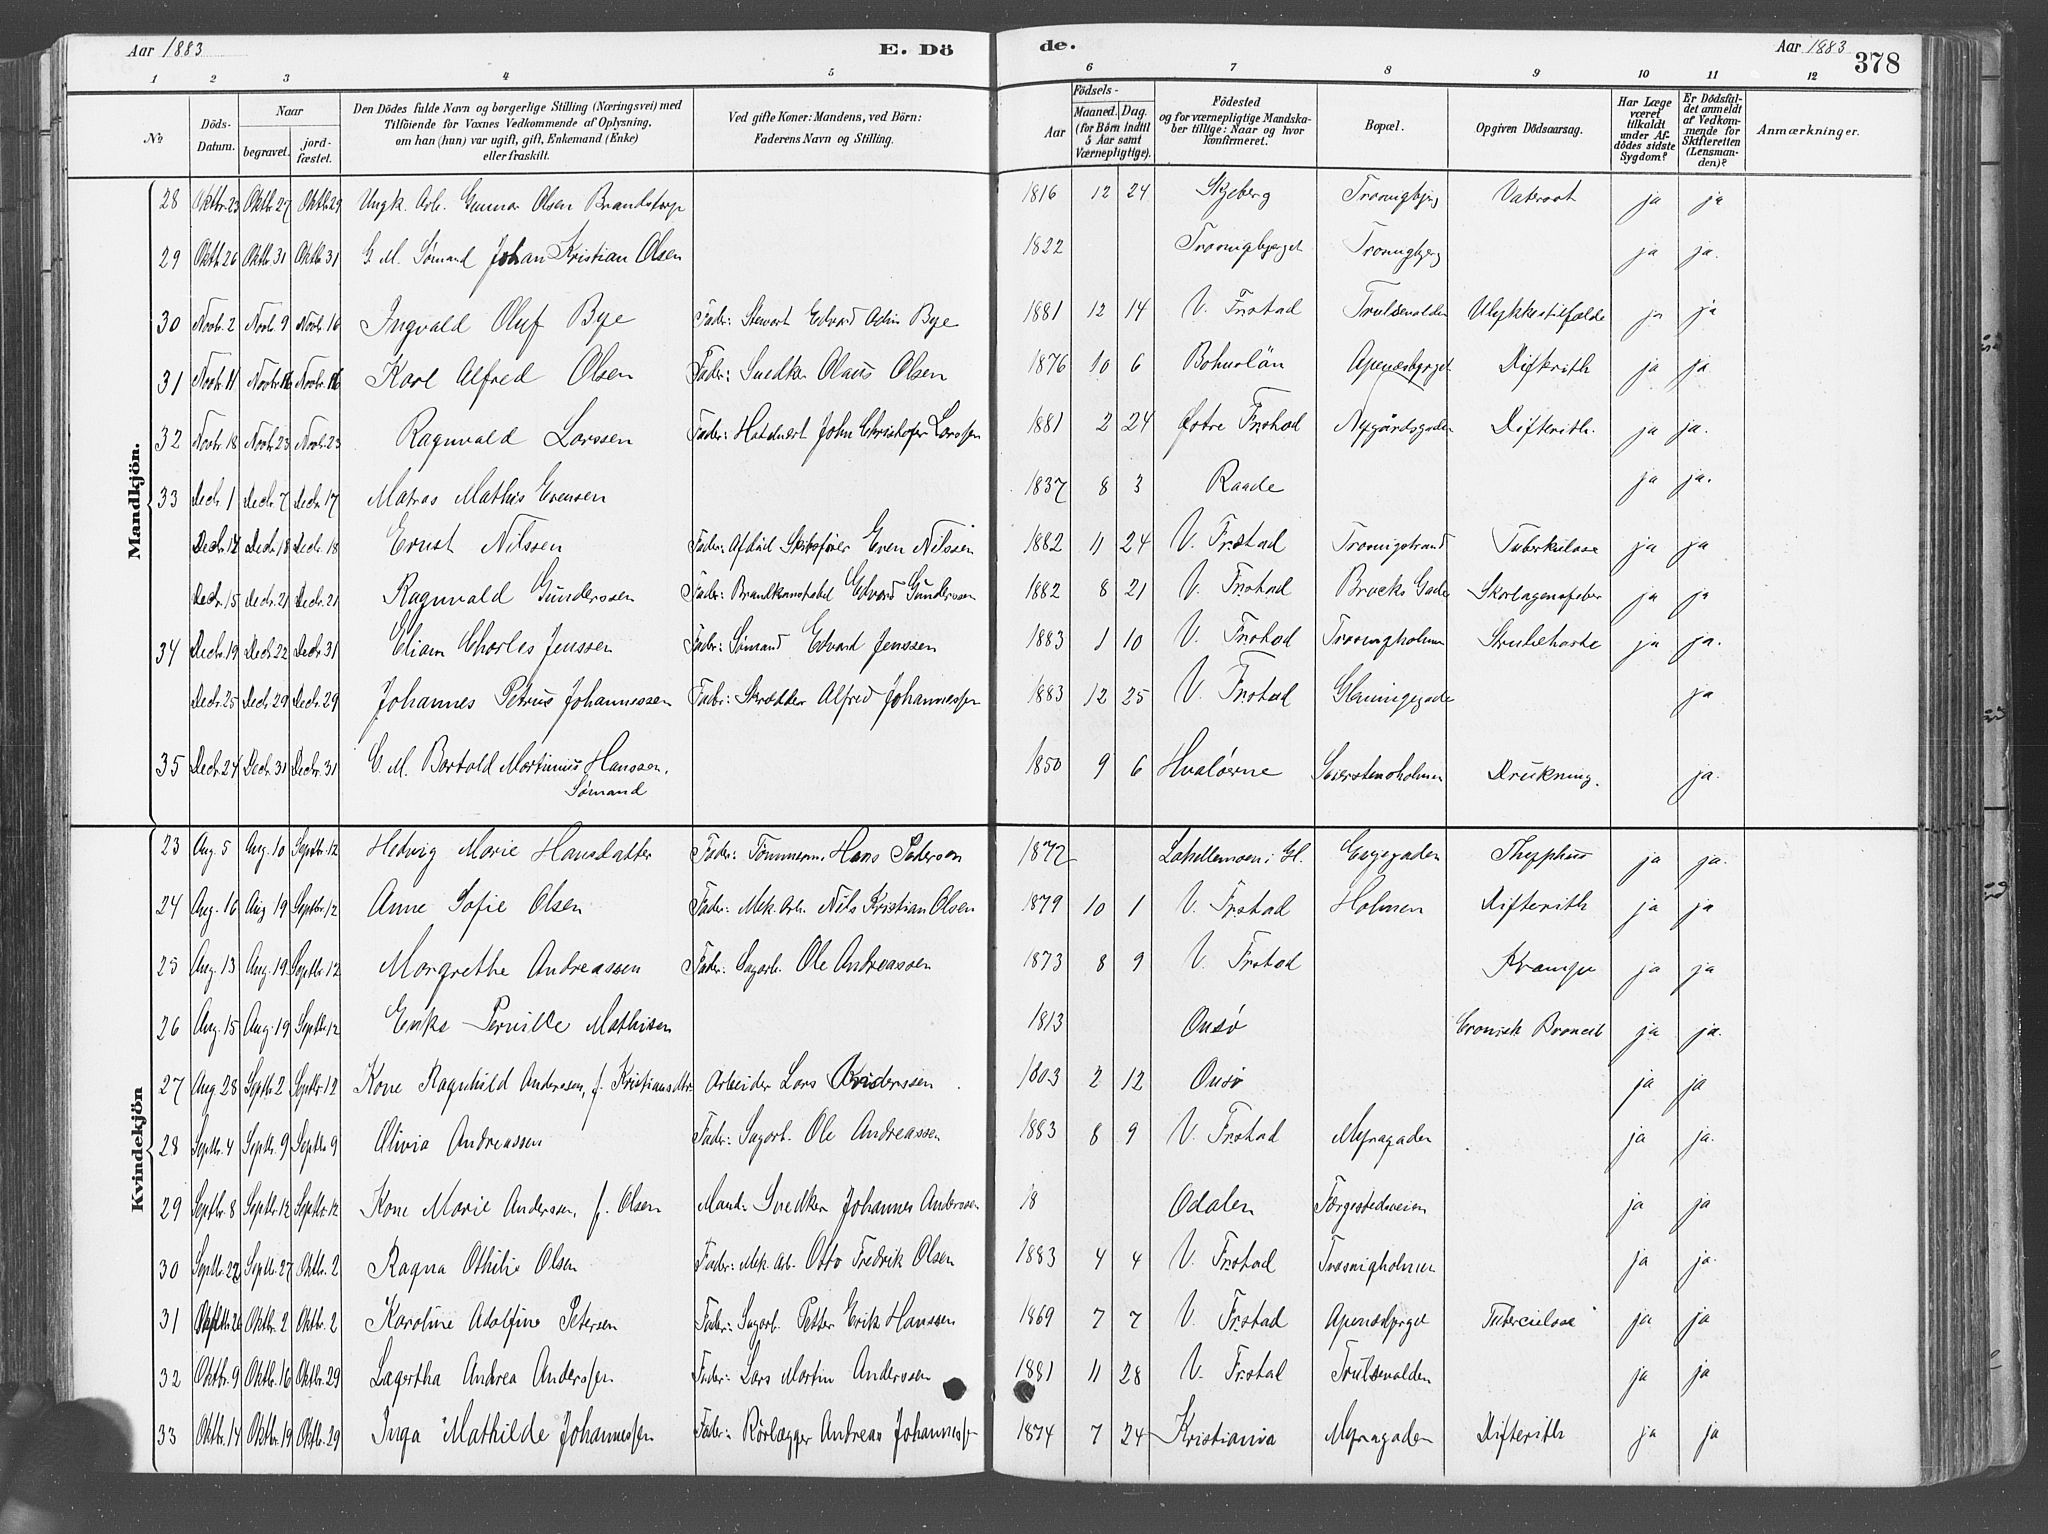 Aar 1883 E. Dö de. Aar 1883 378
1 2 3 4 5 6 7 8 9 10 11 12
No Döds-Datum. Naar begravet. jordfæstet. Den Dödes fulde Navn og borgerlige Stilling (Næringsvei) med Tilföiende for Voxnes Vedkommende af Oplysning, om han (hun) var ugift, gift, Enkemand (Enke) eller fraskilt. Ved gifte Koner: Mandens, ved Börn: Faderens Navn og Stilling. Födsels- Aar Maaned. Dag. (for Börn indtil 5 Aar samt Værnepligtige). Födested og for værnepligtige Mandskaber tillige: Naar og hvor konfirmeret. Bopæl. Opgiven Dödsaarsag. Har Læge været tilkaldt under Afdödes sidste Sygdom? Er Dödsfaldet anmeldt af Vedkommende for Skifteretten (Lensmanden)? Anmærkninger.
Mandkjön.
28 Oktbr. 23 Oktbr. 27 Oktbr. 29 Ungk. Arb. Gunnar Olsen Brandstorp 1816 12 24 Skjeberg Trosvigbjerg Vatersot ja ja
29 Oktb. 26 Oktbr. 31 Oktb. 31 G. M. Sömand Johan Kristian Olsen 1822 Trosvigbjerget Trosvigbjerg ja ja.
30 Novbr. 2 Novbr. 9 Novbr. 16 Ingvald Oluf Bye Fader: Stewart Edvard Bye 1881 12 14 V. Frstad Trulsevolden Ulykkestilfælde ja ja
31 Novbr. 11 Novbr. 16 Novbr. 16 Karl Alfred Olsen Fader: Snedker Olaus Olsen 1876 10 6 Bohuslän Apenæsbjerget Difterith ja ja
32 Novbr. 18 Novbr. 23 Novbr. 23 Ragnvald Larssen Fader: John Christofer Larssen 1881 2 24 Østre Frstad Nygårdsgaden Difterith. ja ja.
33 Decbr. 1 Decbr. 7 Decbr. 17 Matros Mathis Evensen 1837 8 3 Raade ja ja.
Decbr. 12 Decbr. 18 Decbr. 18 Ernst Nilssen Fader: Afdöd Skibsfører Even Nilssen 1882 11 24 V. Frstad Trosvigstrand Tuberkulose ja ja
Decbr. 15 Decbr. 21 Decbr. 21 Ragnvald Gunderssen Fader: Brandkonstabel Edvard Gunderssen 1882 8 21 V. Frstad Brocks Gade Skarlagensfeber ja ja
34 Decbr. 19 Decbr. 22 Decbr. 31 Eliam Charles Jenssen Fader: Sömand Edvard Jenssen 1883 1 10 V. Frstad Trosvigholmen Strubehoste ja ja.
Decbr. 25 Decbr. 29 Decbr. 29 Johannes Petrus Johannessen Fader: Skrædder Alfred Johannessen 1883 12 25 V. Frstad Glemmegade ja
35 Decbr. 24 Decbr. 31 Decbr. 31 G. M. Bartold Martinius Hanssen, 1850 9 6 Hvaløerne Drukning. ja.
Sömand
Kvindekjön
23 Aug. 5 Aug. 10 Septbr. 12 Hedvig Marie Hansdatter Fader: Tömmerm. Hans Pedersen 1872 Engegaden Thypphus ja ja.
24 Aug. 16 Aug 19 Septbr. 12 Anne Sofie Olsen Fader: Mek. Arb. Nils Kristian Olsen 1879 10 1 V. Frstad Holmen Difterith ja ja
25 Aug. 13 Aug. 19 Septbr. 12 Margrethe Andreassen Fader: Sagarb. Ole Andreassen 1873 8 9 V. Frstad Krampe ja ja
26 Aug. 15 Aug. 19 Septbr. 12 Enke Pernille Mathisen 1813 Onsö Cronisk Broncit ja ja.
27 Aug. 28 Septbr. 2 Septbr. 12 Kone Ragnhild Anderssen, f. Kristiansdtr. Arbeider Lars Anderssen 1803 2 12 Onsö ja ja
28 Septbr. 4 Septbr. 9 Septbr. 9 Olivia Andreassen Fader: Sagarb. Ole Andreassen 1883 8 9 V. Frstad Myragaden ja ja.
29 Septbr. 8 Septbr. 12 Septbr. 12 Kone Marie Anderssen, f. Olsen Mand: Snedker Johannes Anderssen 18 Odalen Færgestedsveien ja ja
30 Septbr. 22 Septbr. 27 Oktbr. 2 Ragna Othilie Olsen Fader: Mek. Arb. Otto Fredrik Olsen 1883 4 4 V. Frstad Trosvigholmen ja ja.
31 Septbr. 26 Oktbr. 2 Oktbr. 2 Karoline Adolfine Petersen Fader: Sagarb. Petter Erik Hanssen 1869 7 7 V. Frstad Apenæsbjrget Tuberculose ja ja
32 Oktbr. 9 Oktbr. 16 Oktbr. 29 Lagertha Andrea Anderssen Fader: Lars Martin Anderssen 1881 11 28 V. Frstad Trulsevolden ja ja
33 Oktbr. 14 Oktbr. 19 Oktbr. 29 Inga Mathilde Johannessen Fader: Rörlægger Andreas Johannessen 1874 7 24 Kristiania Myragaden Difterith ja ja